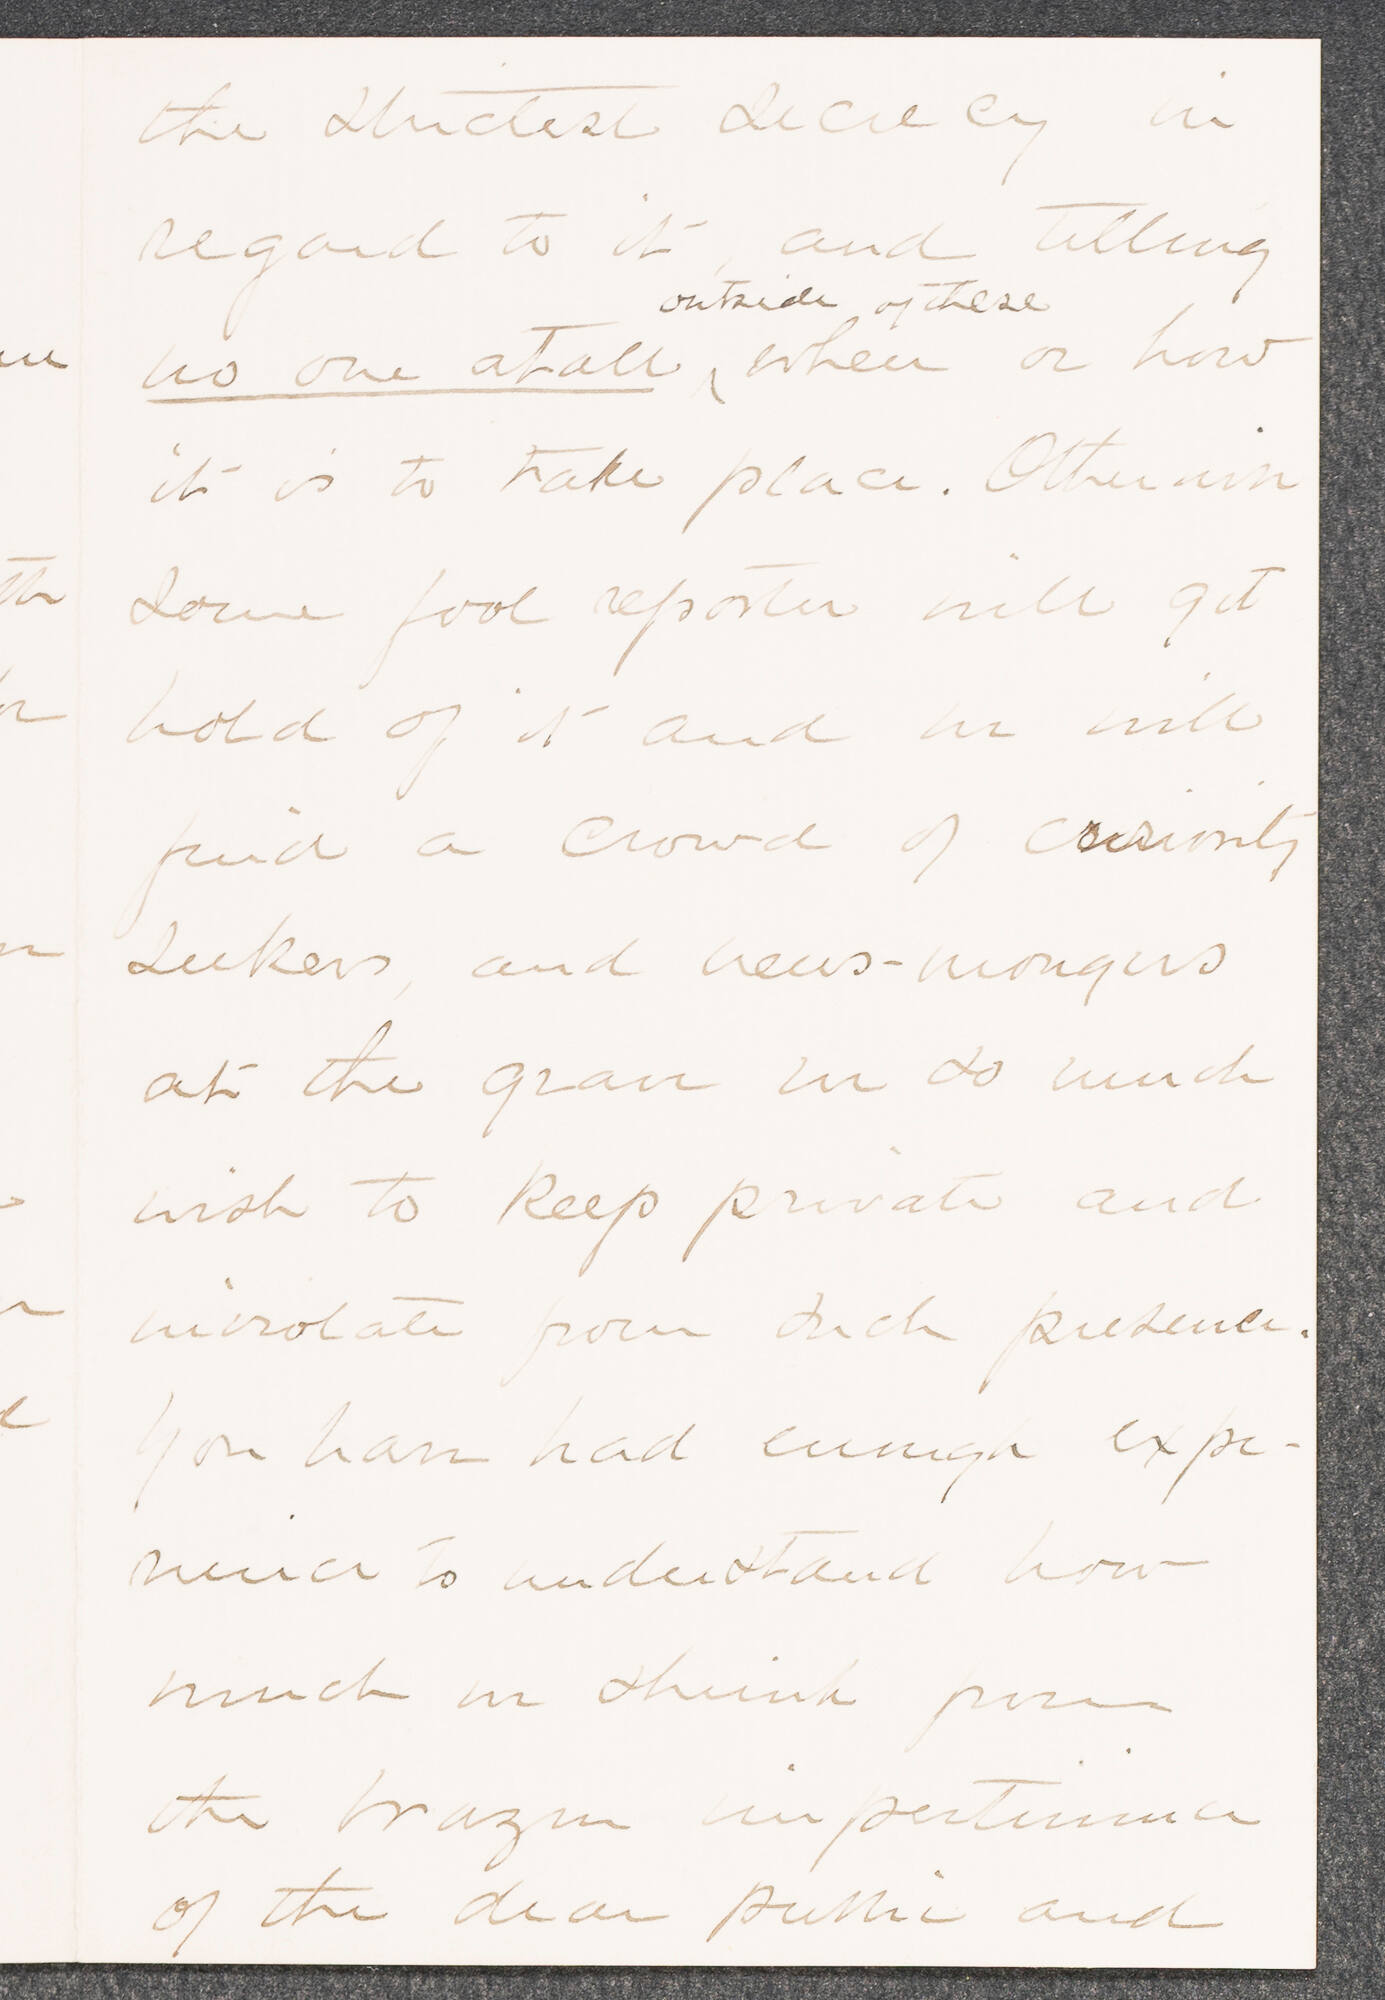 the strictest secrecy in
regard to it, and telling
outside of these
no one at all, when or how
it is to take place. Otherwise
some fool reporter will get
hold of it and we will
find a crowd of curiosity
seekers, and news-mongers
at the grave we so much
wish to keep private and
inviolate from such presence.
You have had enough expe-
rience to understand how
much we shrink from
the brazen impertinence
of the dear public and